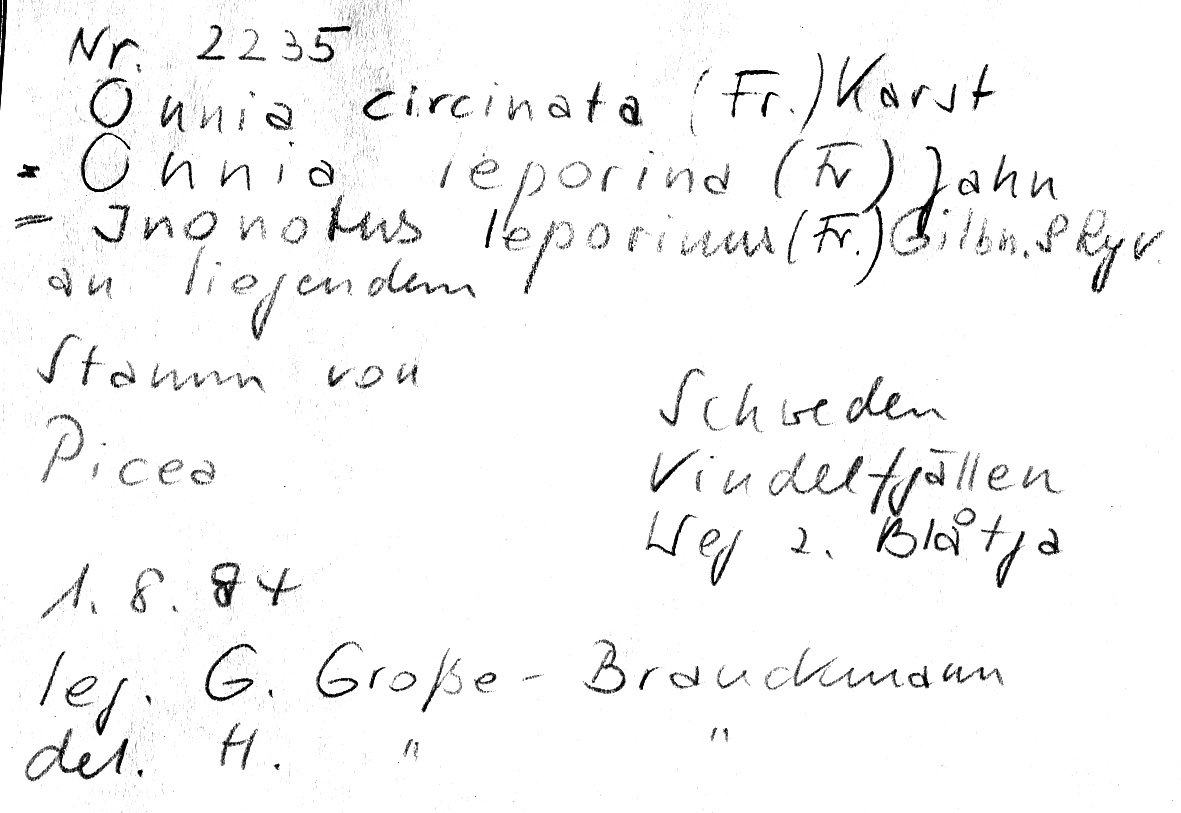 Nr. 2235
Onnia circinata (Fr.) Karst
= Onnia leporina (Fr) Jahn
= Inonotus leporinus (Fr.) Gilbn. & Ryv.
an liegendem
Stamm von
Picea
Schweden
Vindelfjällen
Weg z. Blåtja
1. 8. 84
leg. G. Große-Brauckmann
det. H. " "